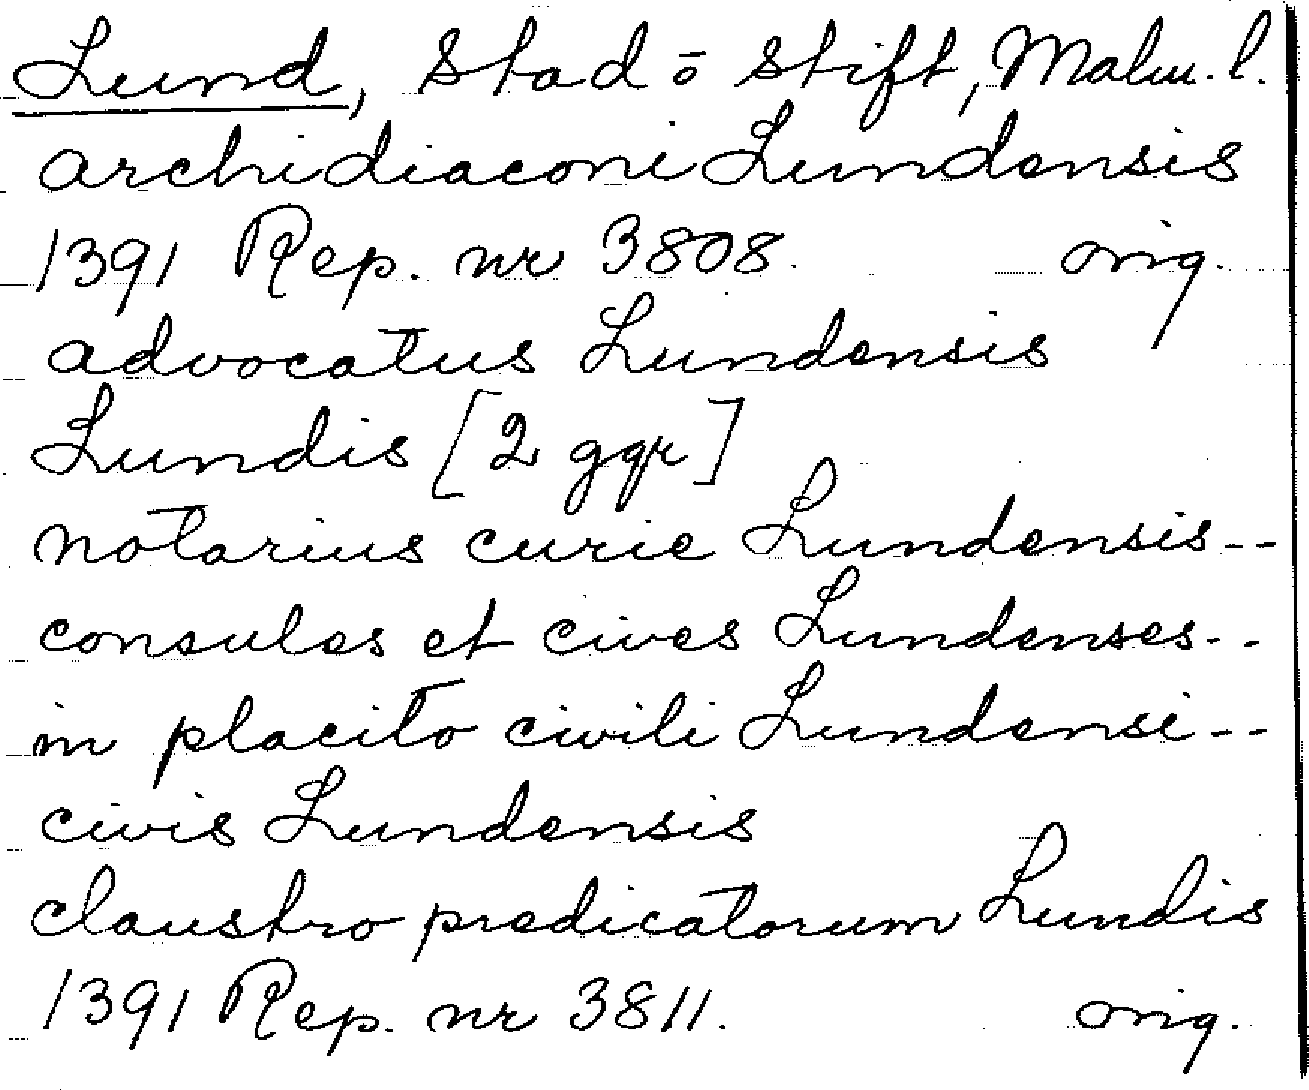 Lund, Stad o Stift, Malm. l.
archidiaconi Lundensis
1391 Rep. nr 3808. orig.
advocatus Lundensis
Lundis [2 ggr]
notarius curie Lundensis--
consules et cives Lundenses--
in placito civili Lundensi--
civis Lundensis
claustro predicatorum Lundis
1391 Rep. nr 3811. orig.